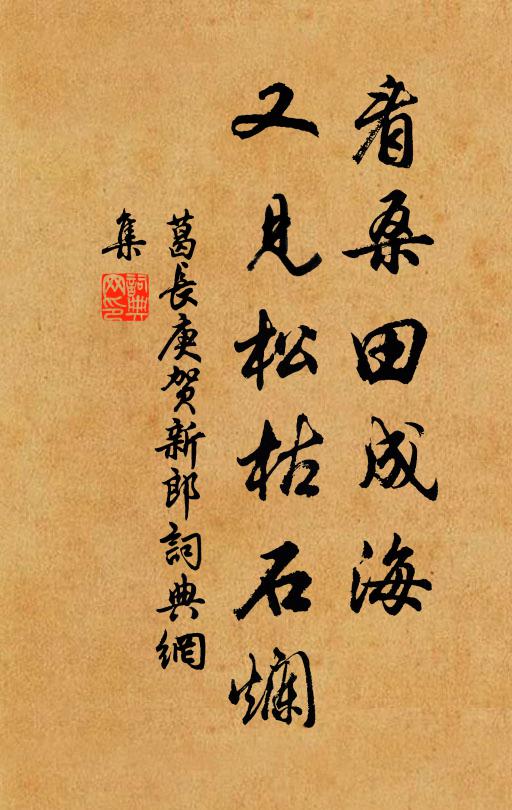 看桑田成海
又見松枯石爛
葛長庚賀新郎詞典網
集
詞典網印